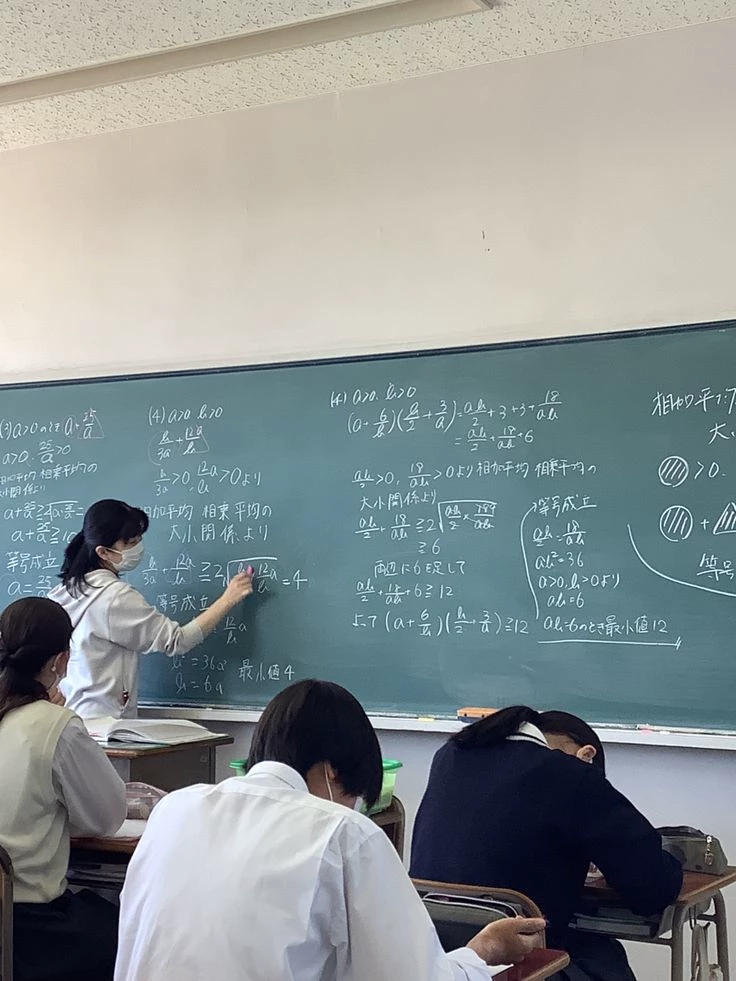 (3) a>0のとき a+25/a
a>0, 25/a>0
相加平均 相乗平均の
大小関係より
等号成立
a=25/a
(4) a>0, b>0
b/3a + 12a/b
b/3a>0, 12a/b>0より
相加平均 相乗平均の
大小関係より
b/3a + 12a/b ≧ 2√ =4
等号成立
b²=36a²
b=6a 最小値4
a>0, b>0
(a+6/b)(b/2+3/a)=ab/2+3+3+18/ab
=ab/2+18/ab+6
ab/2>0, 18/ab>0より 相加平均 相乗平均の
大小関係より
ab/2+18/ab≧2√ab/2×18/ab
≧6
両辺に6を足して
ab/2+18/ab+6≧12
よって (a+6/b)(b/2+3/a)≧12
等号成立
ab/2=18/ab
ab²=36
a>0, b>0より
ab=6
ab=6のとき最小値12
相加平
大
>0.
+
等号